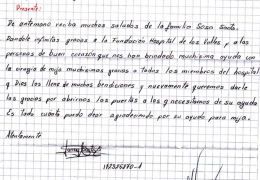 Presente:
De antemano reciba muchos saludos de la familia Sosa
Dandole infinitas gracias a la Fundación Hospital de los Valles, y a las
personas de buen corazón que nos han brindado muchisima ayuda con
la cirugia de mija muchisimas gracias a todos los miembros del hospital
y Dios los llene de muchas bendiciones y nuevamente queremos darle
las gracias por abrirnos las puertas a los q necesitamos de su ayuda
Es todo cuanto puedo decir agradeciendo por su ayuda para mija.
Atentamente